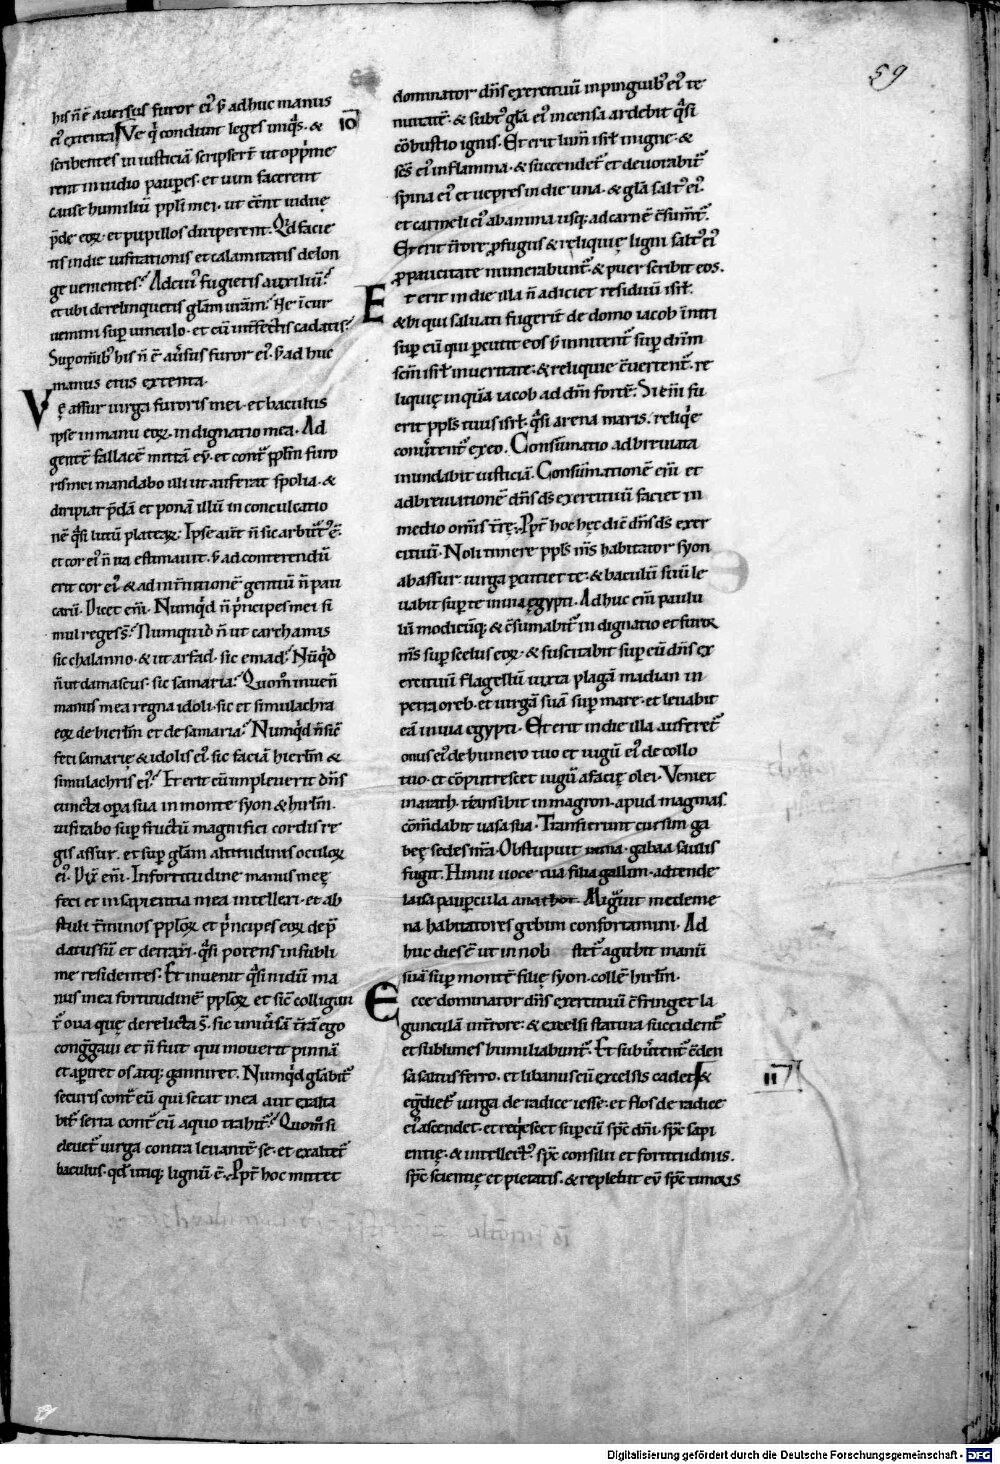 59
his n̄ ē aversus furor ei᾿ s; adhuc manus
ei᾿ extenta. Ve q̇ condunt leges iniq̇s. &
10
scribentes iniusticiā scripser̄t ut opp̄me
rent in iudicio paup̱es. et vim facerent
cause humiliū pp̄li mei. ut eēnt uidue̜
p̄de eoꝝ. et pupillos diriperent. Qͥd facie
tis in die uisitationis et calamitatis de lon
ge uenientes? Ad cui᾿ fugietis auxiliū?
et ubi derelinquetis gl̄am ur̄am? Ne īcur
uemini sup̱ uinculo. et cū int̄fectis cadatis?
Sup̱ omīb᾿ his n̄ ē av̄sus furor ei᾿. s; adhuc
manus eius extenta.
Ve̜ assur uirga furoris mei. et baculus
ipse in manu eoꝝ. indignatio mea. Ad
gentē fallacē mittā eū. et cont̄ pp̄lm furo
ris mei mandabo illi ut auferat spolia. &
diripiat p̄dā et ponā illū in conculcatio
nē q̇si lutū plateaꝝ. Ipse aūt n̄ sic arbit̄᾿ ē.
et cor ei᾿ n̄ ita estimavit. s; ad conterendū
erit cor ei᾿ & ad int̄nitionē gentiū n̄ pau
caꝝ. Dicet em̄. Numq̇d n̄ p̄ncipes mei si
mul reges s̄? Numquid n̄ ut carchamis
sic chalanno. & ut arfad. sic emad? Nūq̇d
n̄ ut damascus. sic samaria? Quom̊ inven̄
manus mea regna idoli. sic et simulachra
eoꝝ de hierl̄m et de samaria? Numq̇d n̄ sic̄
feci samarie̜ & idolis ei᾿ sic faciā hierl̄m &
simulachris ei᾿? Et erit cū impleverit dn̄s
cuncta op̱a sua in monte syon & hirl̄m.
uisitabo sup̱ fructū magnifici cordis re
gis assur. et sup̱ gl̄am altitudinis oculoꝝ
ei᾿. Dix̄ em̄. In fortitudine manus mee̜
feci et in sapientia mea intellexi. et ab
stuli t̄minos pp̄loꝝ et p̄ncipes eoꝝ dep̄
datus sū et detraxi. q̇si potens in subli
me residentes. Et invenit q̇si nidū ma
nus mea fortitudinē pp̄loꝝ et sic̄ colligun
t̄ ova que̜ derelicta s̄. sic univ̄sā t̄rā ego
congͣgavi et n̄ fuit qui moverit pinnā
et ap̱iret os atq; ganniret. Numq̇d gl̄abit᾿
securis cont̄ eū qui secat in ea aut exalta
bit᾿ serra cont̄ eū a quo trahit᾿? Quom̊ si
elevet᾿ virga contra levantē se. et exaltet᾿
baculus. qd̄ utiq; lignū ē. Ppt̄ hoc mittet
dominator dn̄s exercituū in pinguib᾿ ei᾿ te
nuitatē. & subt᾿ gl̄ā ei᾿ incensa ardebit q̇si
cōbustio ignis. Et erit lum̄ isrl̄ in igne. &
sc̄s ei᾿ in flamma. & succendet᾿ et devorabit᾿
spina ei᾿ et vepres in die una. & gl̄a salt᾿ ei᾿.
et carmeli ei᾿ ab anima usq; ad carnē c̄sumet᾿.
Et erit t̄rore p̱fugus & reliquie̜ ligni salt᾿ ei᾿
p̱ paucitate numerabunt᾿. & puer scribet eos.
Et erit in die illa n̄ adiciet residuū isrl̄.
& hi qui salvati fugerīt de domo iacob īniti
sup̱ eū qui p̱cutit eos s; innitent᾿ sup̱ dn̄m
sc̄m isrl̄ in veritate. & reliquie c̄vertent᾿. re
liquie̜ inquā iacob ad dm̄ fortē. Si em̄ fu
erit ppl̄s tuus isrl̄. q̇si arena maris. reliq̇e
conv̄tent᾿ ex eo. Consūmatio adbreviata
inundabit iusticiā. Consūmationē em̄ et
adbreviationē dn̄s ds̄ exercituū faciet in
medio om̄is t̄re̜. Ppt̄ hoc he̜c dic̄ dn̄s ds̄ exer
cituū. Noli timere ppl̄s m̄s habitator syon
ab assur. virga p̱cutiet te. & baculū suū le
vabit sup̱ te in via e̜gypti. Adhuc em̄ paulu
lū modicūq; & c̄sumabit᾿ indignatio et furor
m̄s sup̱ scelus eoꝝ. & suscitabit sup̱ eū dn̄s ex
ercituū flagellū iuxta plagā madian in
petra oreb. et virgā suā sup̱ mare. et levabit
eā in via egypti. Et erit in die illa auferet᾿
onus ei᾿ de humero tuo et iugū ei᾿ de collo
tuo. et cōputrescet iugū a facie̜ olei. Veniet
in aiath. transibit in magron. apud magmas
cōm̄dabit vasa sua. Transierunt cursim ga
bee̜ sedes nr̄a. Obstupuit rama. gabaa saulis
fugit. Hinni voce tua filia gallim. adtende
laisa paup̱cula anathot. Migͣvit medeme
na habitatores gebim confortamini. Ad
huc dies ē ut in nob stet᾿. agitabit manū
suā sup̱ montē filie̜ syon. collē hirl̄m.
Ecce dominator dn̄s exercituū c̄fringet la
gunculā in t̄rore. & excelsi statura succident᾿
et sublimes humiliabunt᾿. Et subv̄tent᾿ c̄den
sa saltus ferro. et libanus cū excelsis cadet. &
11
eg̊diet᾿ virga de radice iesse. et flos de radice
ei᾿ ascendet. et req̇escet sup̱ eū sp̄c dn̄i. sp̄c sapi
entie̜. & intellect᾿. sp̄c consilii et fortitudinis.
sp̄c scientie̜ et pietatis. & replebit eū sp̄c timoris
Digitalisierung gefördert durch die Deutsche Forschungsgemeinschaft - DFG